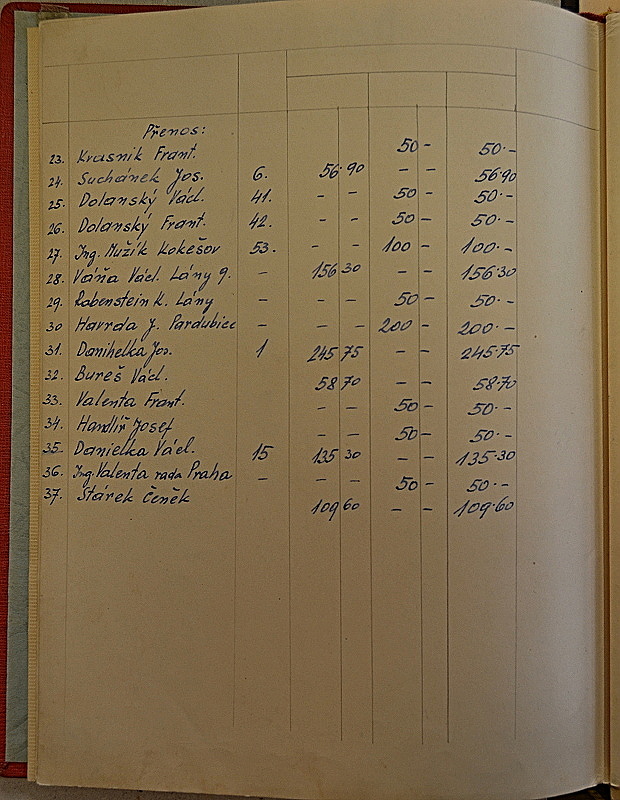 Přenos:
23. Krasnik Frant. 50 - 50·-
24. Suchánek Jos. 6. 56·90 - - 56·90
25. Dolanský Václ. 41. - - 50 - 50·-
26. Dolanský Frant. 42. - - 50 - 50·-
27. Ing. Mužík Kokešov 53. - - 100 - 100·-
28. Váňa Václ. Lány 9. - 156 30 - - 156·30
29. Rabenstein K. Lány - - - 50 - 50·-
30 Havrda J. Pardubice - - - 200 - 200·-
31. Danihelka Jos. 1 245 75 - - 245·75
32. Bureš Václ. 58 70 - - 58·70
33. Valenta Frant. - - 50 - 50·-
34. Handlíř Josef - - 50 - 50·-
35. Danielka Václ. 15 135 30 - - 135·30
36. Ing. Valenta rada Praha - - - 50 - 50·-
37. Stárek Čeněk 109 60 - - 109·60